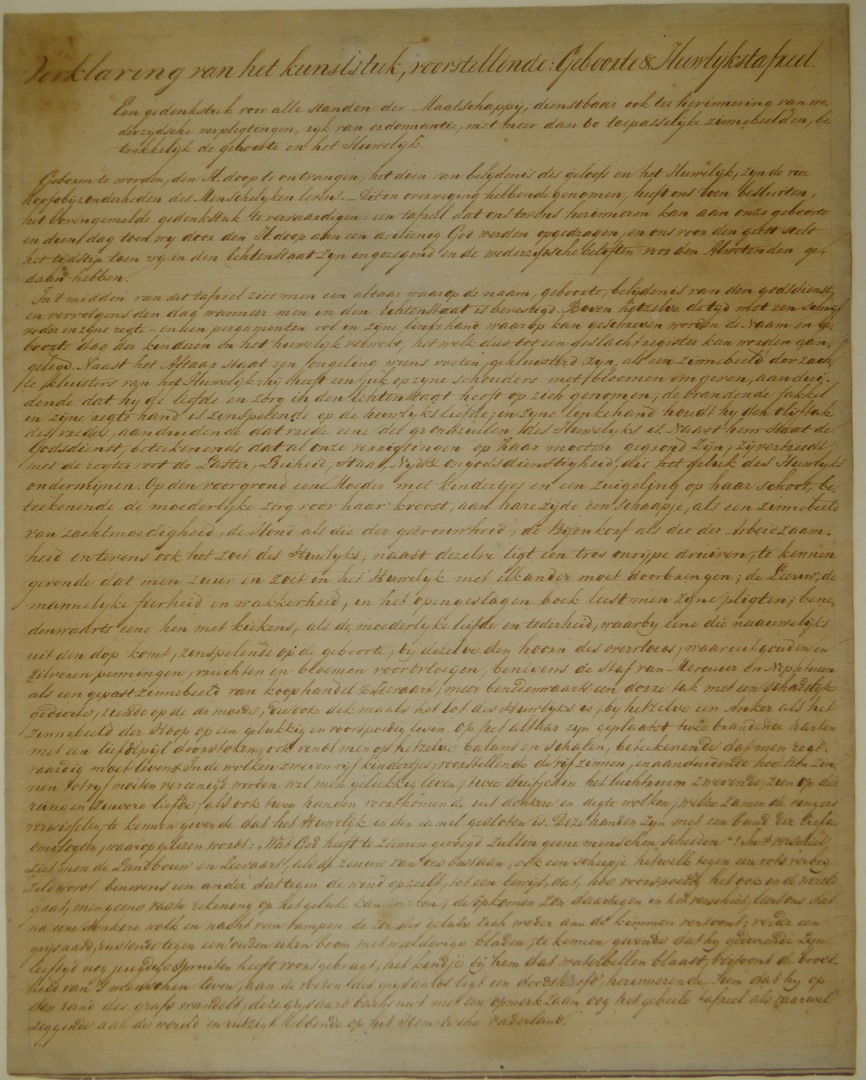 Verklaring van het kunststuk, voorstellende: Geboorte & Huwlijkstafreel.
Een gedenkstuk voor alle standen der Maatschappy, dienstbaar ook ter herinnering van we-
derzydsche verpligtengen, ryk van ordonnantie, met meer dan 60 toepasselyke zinnebeelden, be-
trekkelijk de geboorte en het Huwelijk.
Geboren te worden, den H. doop te ontvangen, het doen van belydenis des geloofs en het Huwelijk, zyn de vier
hoofdbyzonderheden des Menschelyken levens. Dit in overweging hebbende genomen, heeft ons doen besluiten,
het bovengemelde gedenkstuk te vervaardigen: een tafreel dat ons tevens herinneren kan aan onze geboorte
en dien dag toen wy door den H. doop aan een drieënig God werden opgedragen, en ons voor den geest stelt
het tydstip toen wy in den Echtenstaat zyn ingezegend en de wederzydsche beloften voor den Alwetenden ge-
daan hebben.
In 't midden van dit tafreel ziet men een altaar waarop de naam, geboorte, belydenis van den godsdienst,
en vervolgens den dag wanneer men in den Echtenstaat is bevestigd. Boven hetzelve de tyd met een schryf
veder in zyne regte- en een pergamenten rol in zyne linkerhand waarop kan geschreven worden de Naam en Ge-
boorte dag der kinderen in het huwelijk verwekt, het welk dus tot een geslachtregister kan worden aan-
gelegd. Naast het Altaar staat een jongeling wiens voeten gekluisterd zyn, als een zinnebeeld der zach-
te kluisters van het Huwelijk; hy heeft een juk op zyne schouders met bloemen omgeven, aandui-
dende dat hy de liefde en zorg in den Echtenstaat heeft op zich genomen; de brandende fakkel
in zyne regte hand is zinspelende op de huwlyks liefde; in zyne linkehand houdt hy den olyftak
des vredes, aanduidende dat vrede eene der grondzuilen des Huwelyks is. Naast hem staat de
Godsdienst, betekenende dat al onze verrigtingen op Haar moeten gegrond zyn; zy vertreedt
met de regter voet de Laster, Nyd en ongodsdienstigheid, die het geluk des Huwlyks
ondermynen. Op den voorgrond eene Moeder met kindertjes en een zuigeling op haar schoot, be-
teekenende de moederlyke zorg voor haar kroost; aan hare zyde een schaapje, als een zinnebeeld
van zachtmoedigheid, de Hond als die der getrouwheid, de Byenkorf als die der Arbeidzaam-
heid en tevens ook het zoet des Huwlyks; naast dezelve ligt een tros onrype druiven, te kennen
gevende dat men zuur en zoet in het Huwelyk met elkander moet doorbrengen; de Leeuw, de
mannelyke fierheid en wakkerheid, in het opengeslagen boek leest men zyne pligten; bene-
denwaarts eene hen met kiekens, als de moederlyke liefde en tederheid, waarby eene die naauwelijks
uit den dop komt, zinspelende op de geboorte; by dezelve den hoorn des overvloeds, waaruit gouden en
zilveren penningen, vruchten en bloemen voortvloeijen, benevens de staf van Mercuur en Nepthuun
als een gepast zinnebeeld van koophandel & Zeevaart; meer benedenwaarts een dorre tak met een schadelyk
gedierte, ziende op de armoede, die ook dikmaals het lot des Huwlyks is, by hetzelve een Anker als het
zinnebeeld der Hoop op een gelukkig en voorspoedig leven. Op het altaar zyn geplaatst twee brandende harten
met een liefdepyl doorstoken, ook vindt men op hetzelve balans en schalen, betekenende dat men regt-
vaardig moet leven. In de wolken zweven vyf kindertjes, voorstellende de vyf zinnen, en aanduidende hoe die zin-
nen tot vyf moeten vereenigd worden wil men gelukkig leven; twee duifjes in het luchtruim zwevende, zien op de
reine en zuivere liefde; als ook twee handen voortkomende uit donkere en digte wolken, welke zamen de ringen
verwisselen, te kennen gevende dat het Huwelijk in den hemel gesloten is. Deze handen zyn met een band der liefde
omslogen, waarop gelezen wordt: Wat God heeft te zamen gevoegd zullen geene menschen scheiden. In 't verschiet
ziet men de Landbouw en Zeevaart, als de zenuw van ons bestaan; ook een scheepje hetwelk tegen een rots verbry-
zeld wordt benevens een ander dat tegen de wind opzeilt, tot een bewys, dat, hoe voorspoedig het ook in de wereld
gaat, men geene vaste rekening op het geluk kan maken; de opkomende Zon daartegen in het verschiet, leert ons dat
na eene donkere wolk en nacht van rampen de zon des geluks zich weder aan de kimmen vertoont; verder een
grysaard, rustende tegen een ouden eiken boom met weelderige bladen, te kennen gevende dat hy gedurende zyn
leeftyd nog jeugdige spruiten heeft voortgebragt, het kindje by hem dat waterbellen blaast, vertoont de broos-
heid van 's menschen leven; aan de voeten des grysaards ligt een doodshoofd, herinnerende hem dat hy op
den rand des grafs wandelt, deze grysaard beschouwt met een opmerkzaam oog het geheele tafreel als vaarwel
zeggende aan de wereld en uitzigt hebbende op het Hemelsche vaderland.